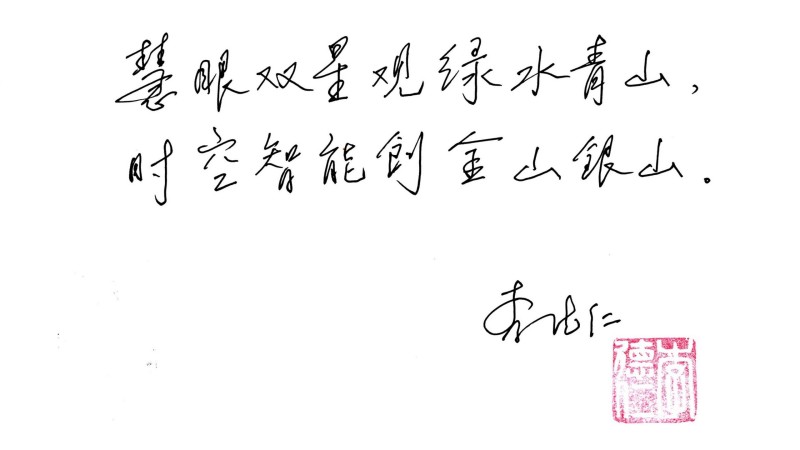 慧眼双星观绿水青山，
时空智能創金山銀山.
李德仁
李德仁